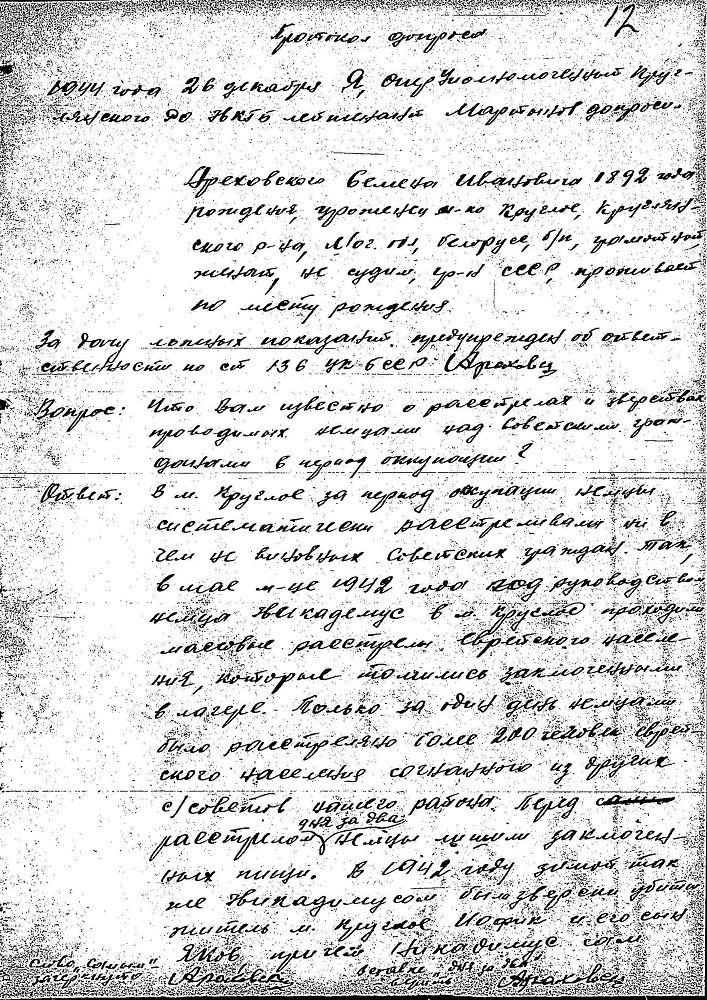 12
Протокол допроса
1944 года 26 декабря Я, Оперуполномоченный Круг-
лянского РО НКГБ лейтенант Мартынов допросил
Ореховского Семена Ивановича 1892 года
рождения, уроженец м-ко Круглое, Круглян-
ского р-на, Мог. обл, белорус, б/п, грамотный,
женат, не судим, гр-н СССР, проживает
по месту рождения.
За дачу ложных показаний предупрежден об ответ-
ственности по ст 136 УК БССР
Вопрос: Что Вам известно о расстрелах и зверствах
проводимых немцами над Советскими граж-
данами в период оккупации?
Ответ: В м. Круглое за период окупации немцы
систематически расстреливали ни в
чем не виновных Советских граждан. Так,
в мае м-це 1942 года под руководством
немца Никадемус в м. Круглое проходили
массовые расстрелы Еврейского населе-
ния, которые томились заключенными
в лагере. Только за один день немцами
было расстреляно более 200 человек еврей-
ского населения согнанного из других
с/советов нашего района. Перед
расстрелом дня за два немцы лишили заключен-
ных пищи. В 1942 году зимой так
же Никадимусом был зверски убиты
житель м. Круглое Иофик и его сын
Яков, причем Никадимус сам
слово "самым"
зачеркнуто
вставка "дня за два"
верно